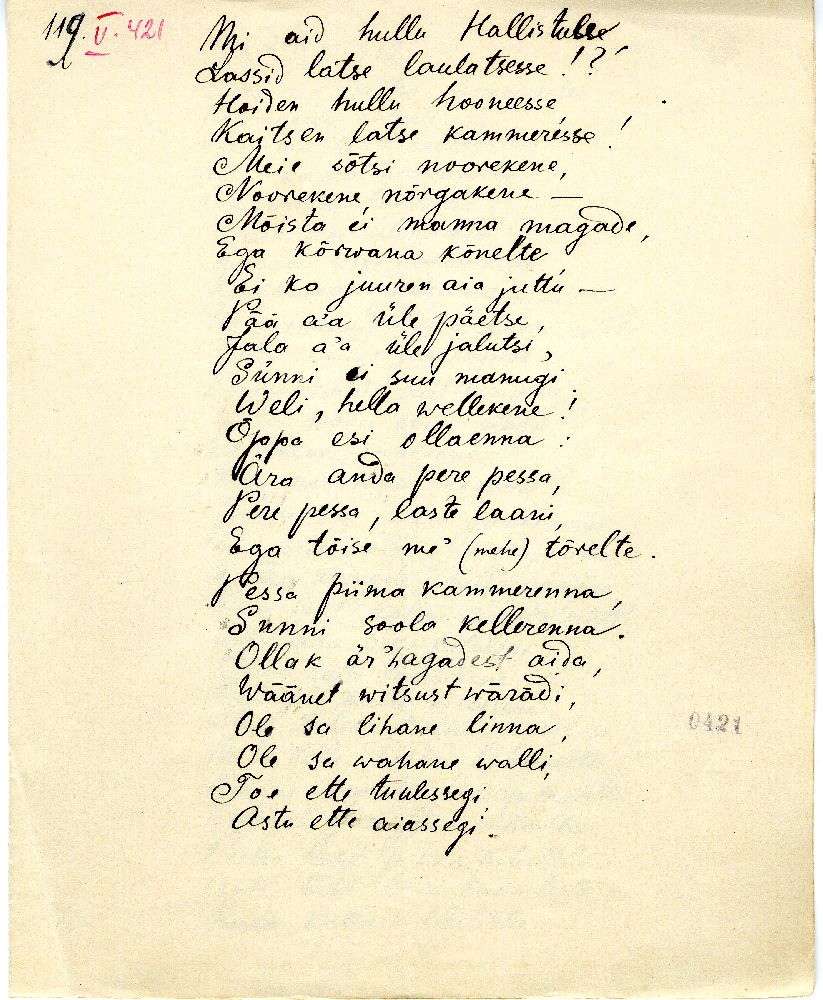 119. V. 421
Mi aid hullu Hallistulle
Lassid latse laulatsesse!?
Hoiden hullu hooneesse
Kaitsen latse kammeresse!
Meie sõtsi noorekene,
Noorekene, nõrgakene —
Mõista ei manna magade,
Ega kõrwana kõnelte
Ei ko juuren aia juttu —
Pää a'a üle päetse,
Jala a'a üle jalutsi,
Sünni ei suu manugi.
Weli, hella wellekene!
Oppa esi ollaenna:
Ära anda pere pessa,
Pere pessa, laste laani,
Ega tõise me' (mehe) tõrelte.
Pessa piima kammerenna,
Sunni soola kellerenna.
Ollak är' hagadest aida,
Wäänet witsust wärädi,
Ole sa lihane linna,
Ole sa wahane walli,
Toe ette tuulessegi,
Astu ette aiassegi.
0421